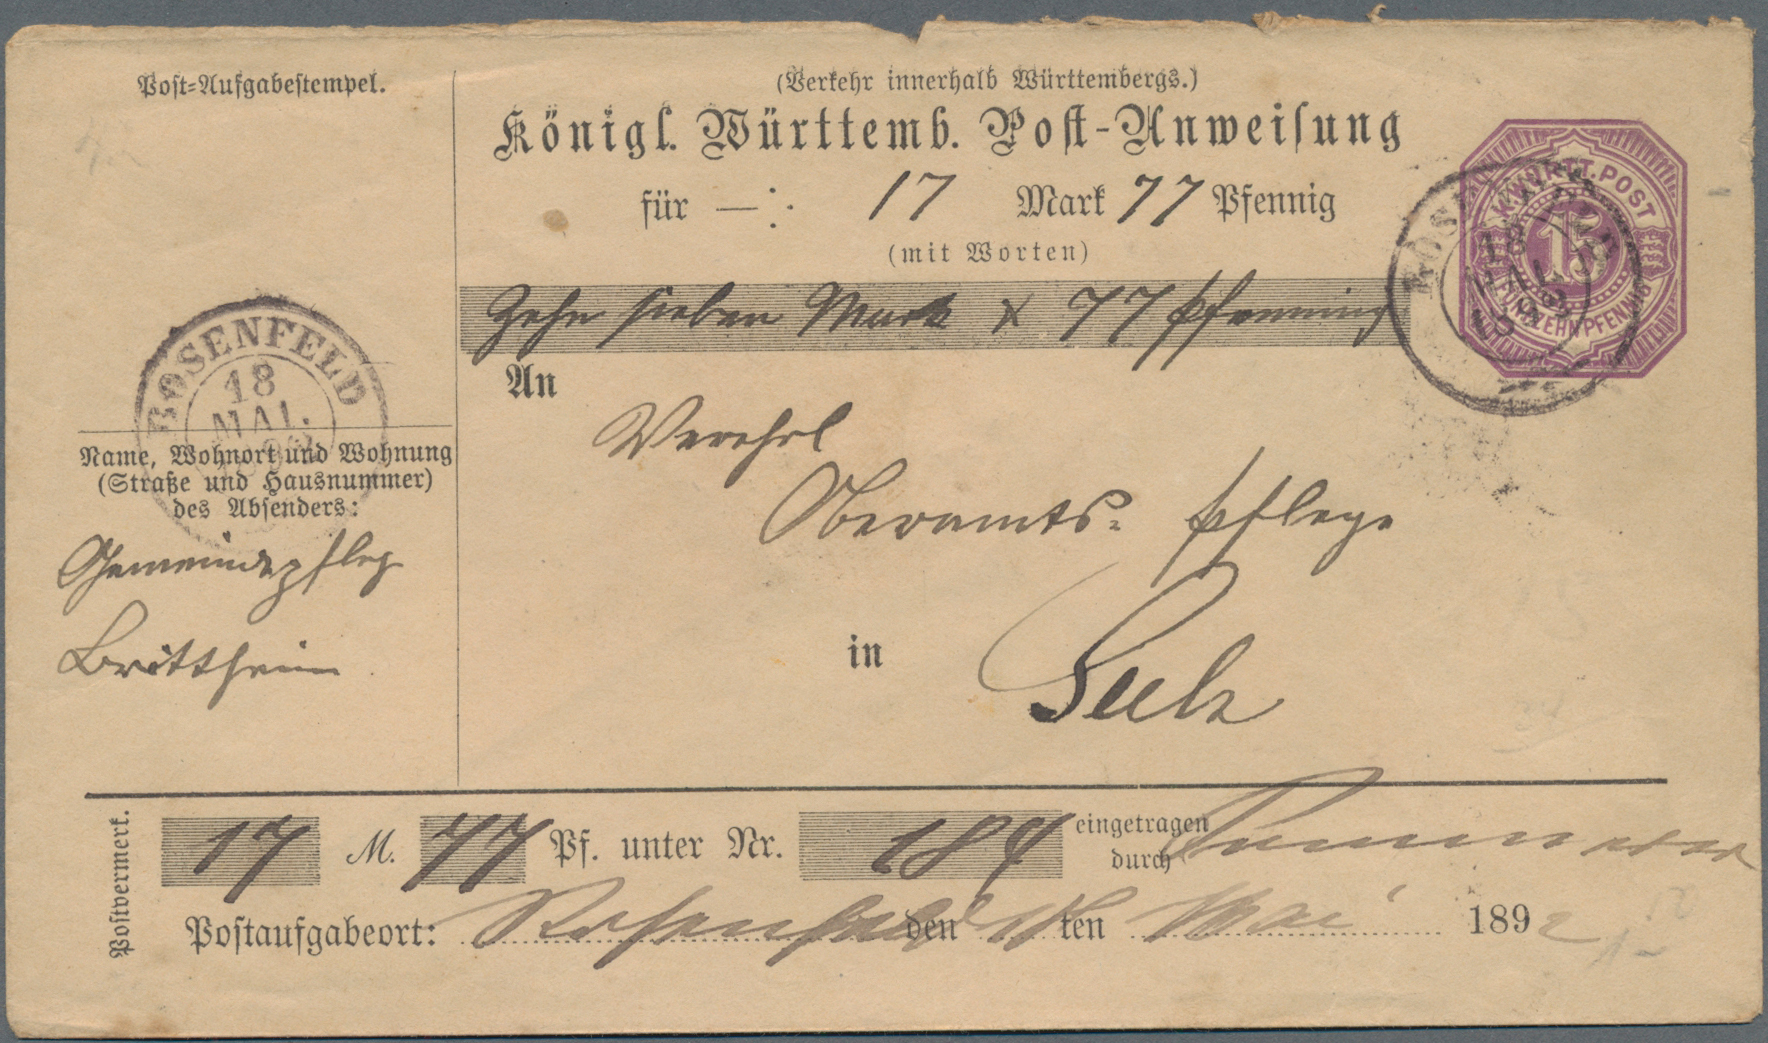 Post-Aufgabestempel.
(Verkehr innerhalb Württembergs.)
Königl. Württemb. Post-Anweisung
für —: 17 Mark 77 Pfennig
(mit Worten)
Zehn sieben Mark x 77 Pfennig
K. WÜRTT. POST
15
FÜNFZEHN PFENNIG
ROSENFELD
18
MAI.
An
Verehrl
Oberamts- Pflege
in Sulz
Name, Wohnort und Wohnung
(Straße und Hausnummer)
des Absenders:
Gemeindepfleg
Brittheim
Postvermerk.
17 M. 77 Pf. unter Nr. 184 eingetragen
durch
Postaufgabeort: Rosenfeld den 18ten Mai 1892